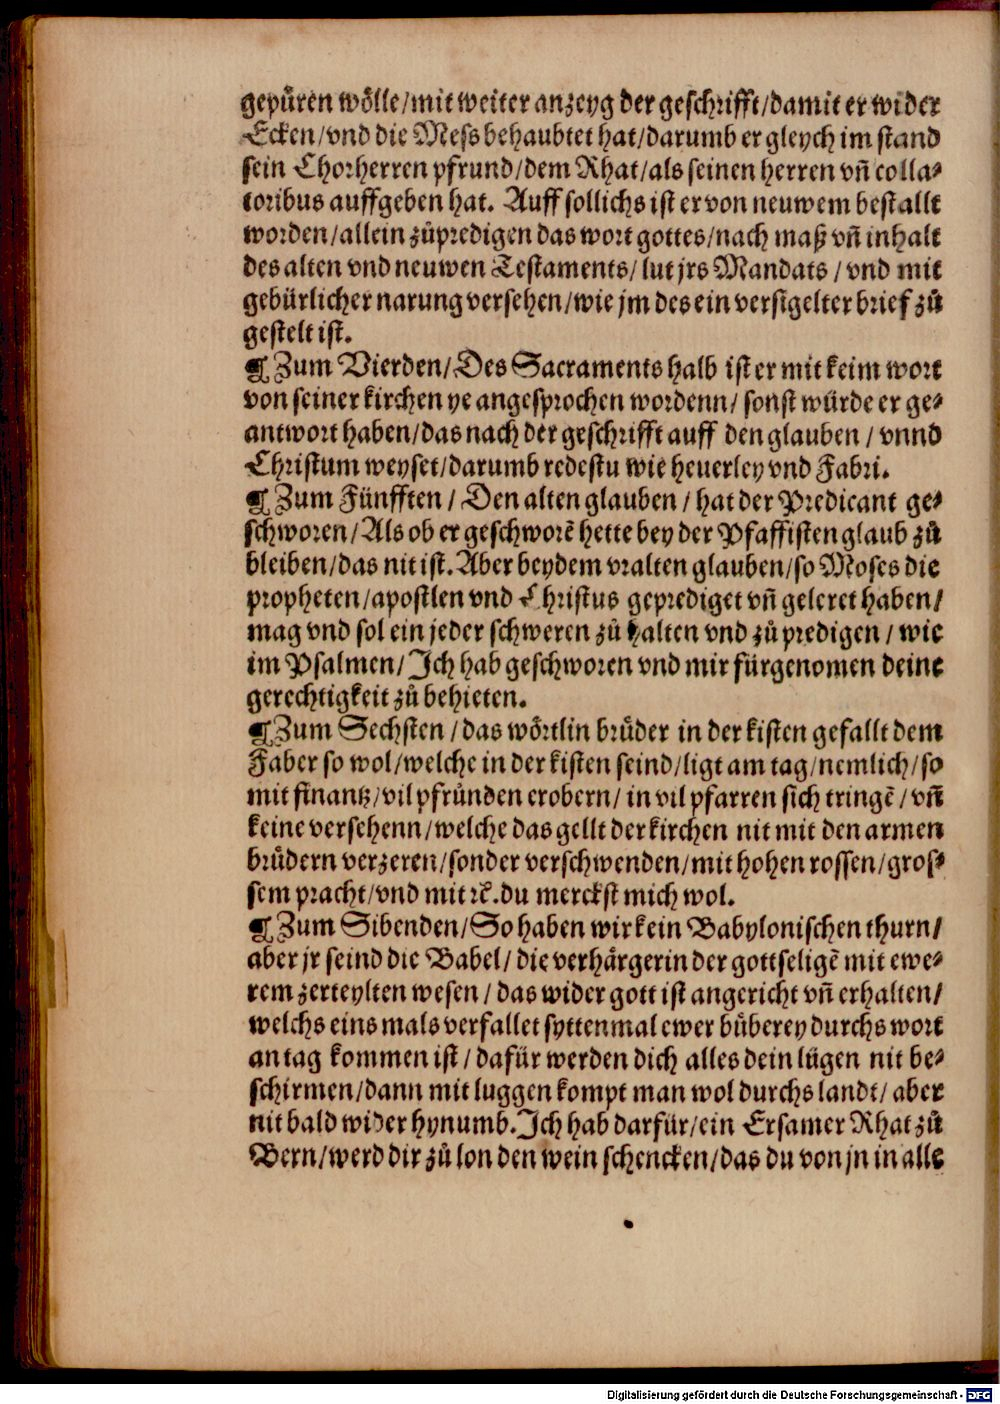 gepuͤren woͤlle/mit weiter anzeyg der geschrifft/damit er wider
Ecken/vnd die Mess behaubtet hat/darumb er gleych im stand
sein Chorherren pfrund/dem Rhat/als seinen herren vñ colla⸗
toribus auffgeben hat. Auff sollichs ist er von neuwem bestallt
worden/allein zuͤ predigen das wort gottes/nach maß vñ inhalt
des alten vnd neuwen Testaments/lut jrs Mandats/vnd mit
gebürlicher narung versehen/wie jm des ein versigelter brief zuͤ
gestelt ist.
¶ Zum Vierden/Des Sacraments halb ist er mit keim wort
von seiner kirchen ye angesprochen wordenn/sonst würde er ge⸗
antwort haben/das nach der geschrifft auff den glauben/vnnd
Christum weyset/darumb redestu wie heuerley vnd Fabri.
¶ Zum Fünfften/Den alten glauben/hat der Predicant ge⸗
schworen/Als ob er geschworē hette bey der Pfaffisten glaub zuͤ
bleiben/das nit ist. Aber bey dem vralten glauben/so Moses die
propheten/apostlen vnd Christus geprediget vñ geleret haben/
mag vnd sol ein jeder schweren zuͤ halten vnd zuͤ predigen/wie
im Psalmen/Ich hab geschworen vnd mir fürgenomen deine
gerechtigkeit zuͤ behieten.
¶ Zum Sechsten/das woͤrtlin bruͤder in der kisten gefallt dem
Faber so wol/welche in der kisten seind/ligt am tag/nemlich/so
mit finantz/vil pfruͤnden erobern/in vil pfarren sich tringē/vñ
keine versehenn/welche das gellt der kirchen nit mit den armen
bruͤdern verzeren/sonder verschwenden/mit hohen rossen/gros⸗
sem pracht/vnd mit ꝛc̄. du merckst mich wol.
¶ Zum Sibenden/So haben wir kein Babylonischen thurn/
aber jr seind die Babel/die verhaͤrgerin der gottseligē mit ewe⸗
rem zerteylten wesen/das wider gott ist angericht vñ erhalten/
welchs eins mals verfallet syttenmal ewer buͤberey durchs wort
an tag kommen ist/dafür werden dich alles dein lügen nit be⸗
schirmen/dann mit luggen kompt man wol durchs landt/aber
nit bald wider hynumb. Ich hab darfür/ein Ersamer Rhat zuͤ
Bern/werd dir zuͤ lon den wein schencken/das du von jn in alle
Digitalisierung gefördert durch die Deutsche Forschungsgemeinschaft - DFG